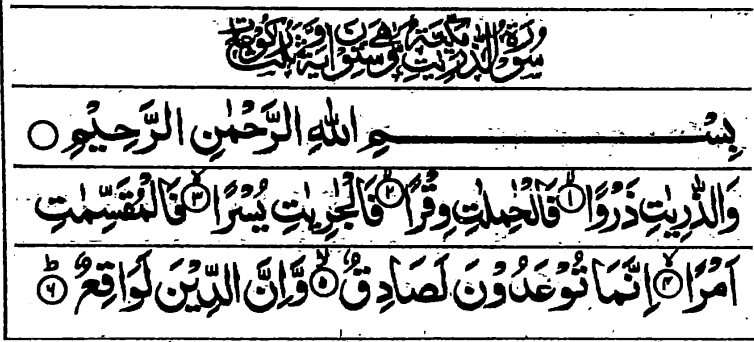 سُوْرَةُ الذّٰرِيٰتِ مَكِّيَّةٌ وَّهِيَ سِتُّوْنَ اٰيَةً وَّثَلٰثُ رُكُوْعَاتٍ
بِسْمِ اللّٰهِ الرَّحْمٰنِ الرَّحِيْمِ ○
وَالذّٰرِيٰتِ ذَرْوًا ۙ﴿۱﴾ فَالْحٰمِلٰتِ وِقْرًا ۙ﴿۲﴾ فَالْجٰرِيٰتِ يُسْرًا ۙ﴿۳﴾ فَالْمُقَسِّمٰتِ
اَمْرًا ۙ﴿۴﴾ اِنَّمَا تُوْعَدُوْنَ لَصَادِقٌ ۙ﴿۵﴾ وَّاِنَّ الدِّيْنَ لَوَاقِعٌ ؕ﴿۶﴾